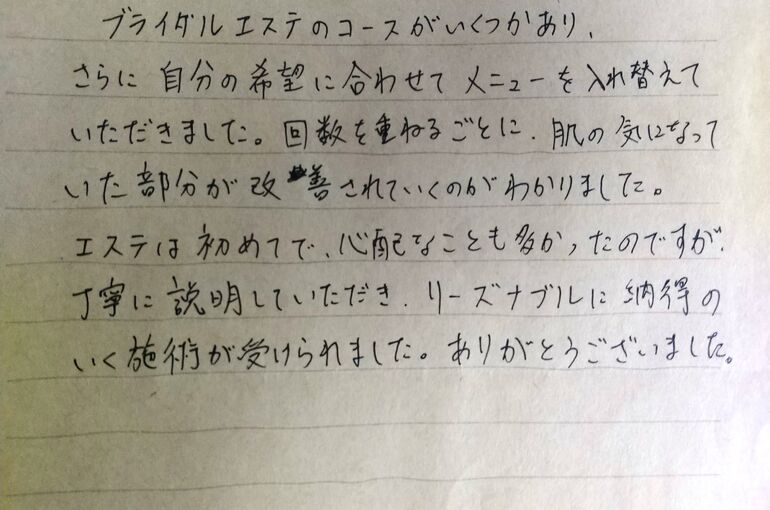 ブライダルエステのコースがいくつかあり、
さらに自分の希望に合わせてメニューを入れ替えて
いただきました。回数を重ねるごとに、肌の気になって
いた部分が改善されていくのがわかりました。
エステは初めてで、心配なことも多かったのですが、
丁寧に説明していただき、リーズナブルに納得の
いく施術が受けられました。ありがとうございました。